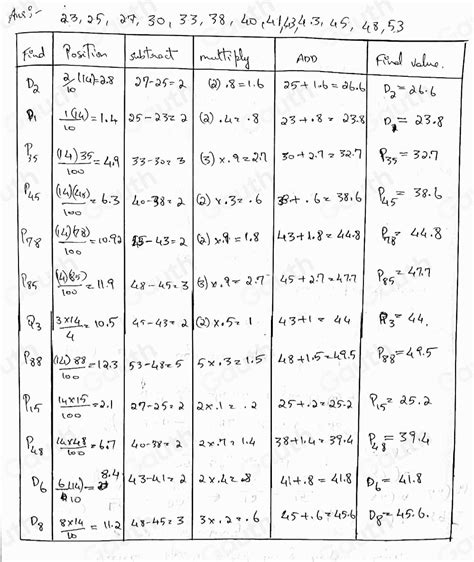 Ans:- 23, 25, 27, 30, 33, 38, 40, 41, 43, 43, 45, 48, 53
Find Position subtract multiply ADD Final value.
D2 2/10 (14)=2.8 27-25=2 (2) .8=1.6 25+1.6=26.6 D2=26.6
D1 1(14)/10=1.4 25-23=2 (2) .4=.8 23+.8=23.8 D1=23.8
P35 (14)35/100=4.9 33-30=3 (3)x.9=2.7 30+2.7=32.7 P35=32.7
P45 (14)(45)/100=6.3 40-38=2 (2)x.3=.6 38+.6=38.6 P45=38.6
P78 (14)(78)/100=10.92 45-43=2 (2)x.9=1.8 43+1.8=44.8 P78=44.8
P85 (14)(85)/100=11.9 48-45=3 (3)x.9=2.7 45+2.7=47.7 P85=47.7
Q3 3x14/4=10.5 45-43=2 (2)x.5=1 43+1=44 Q3=44.
P88 (14)88/100=12.3 53-48=5 5x.3=1.5 48+1.5=49.5 P88=49.5
P15 14x15/100=2.1 27-25=2 2x.1=.2 25+.2=25.2 P15=25.2
P48 14x48/100=6.7 40-38=2 2x.7=1.4 38+1.4=39.4 P48=39.4
D6 6(14)/10=8.4 43-41=2 2x.4=.8 41+.8=41.8 D6=41.8
D8 8x14/10=11.2 48-45=3 3x.2=.6 45+.6=45.6 D8=45.6.